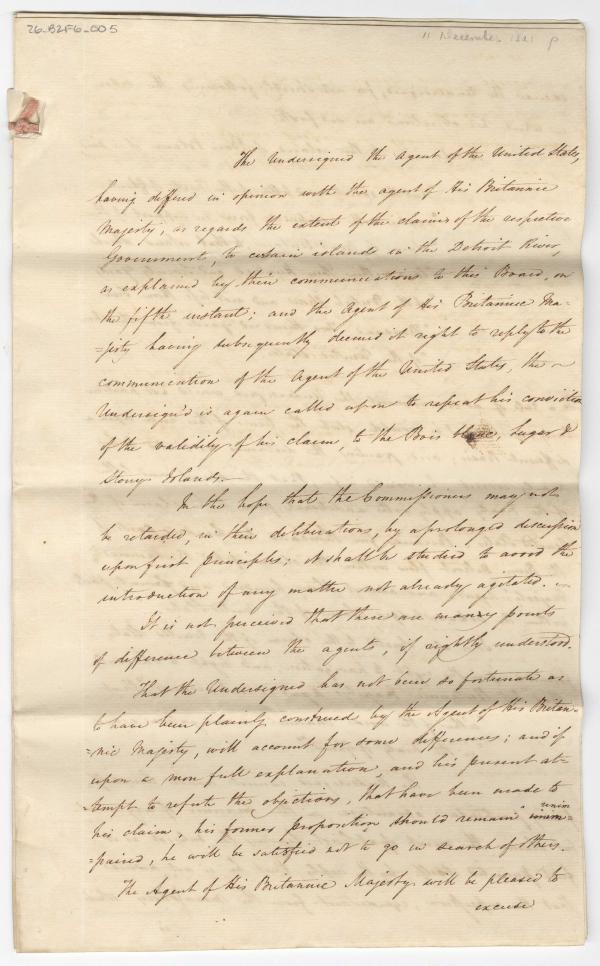 26-B2F6-005
11 December 1821 P
The Undersigned the Agent of the United States,
having differed in opinion with the agent of His Britannic
Majesty, as regards the extent of the claims of the respective
Governments, to certain islands in the Detroit River,
as explained by their communications to this Board, on
the fifth instant; and the Agent of His Britannic Ma-
=jesty having subsequently deemed it right to reply to the
communication of the Agent of the United States, the ~
Undersign'd is again called upon to repeat his conviction
of the validity of his claim, to the Bois blanc, Sugar &
Stony Islands.
In the hope that the Commissioners may not
be retarded, in their deliberations, by a prolonged discussion
upon first principles; it shall be studied to avoid the
introduction of any matter not already agitated.
It is not perceived that there are many points
of difference between the agents, if rightly understood.
That the Undersigned has not been so fortunate as
to have been plainly construed by the Agent of His Britan-
=nic Majesty, will account for some differences; and if
upon a more full explanation, and his present at-
=tempt to refute the objections, that have been made to
his claim, his former proposition should remain unim
=paired, he will be satisfied not to go in search of others.
The Agent of His Britannic Majesty will be pleased to
excuse